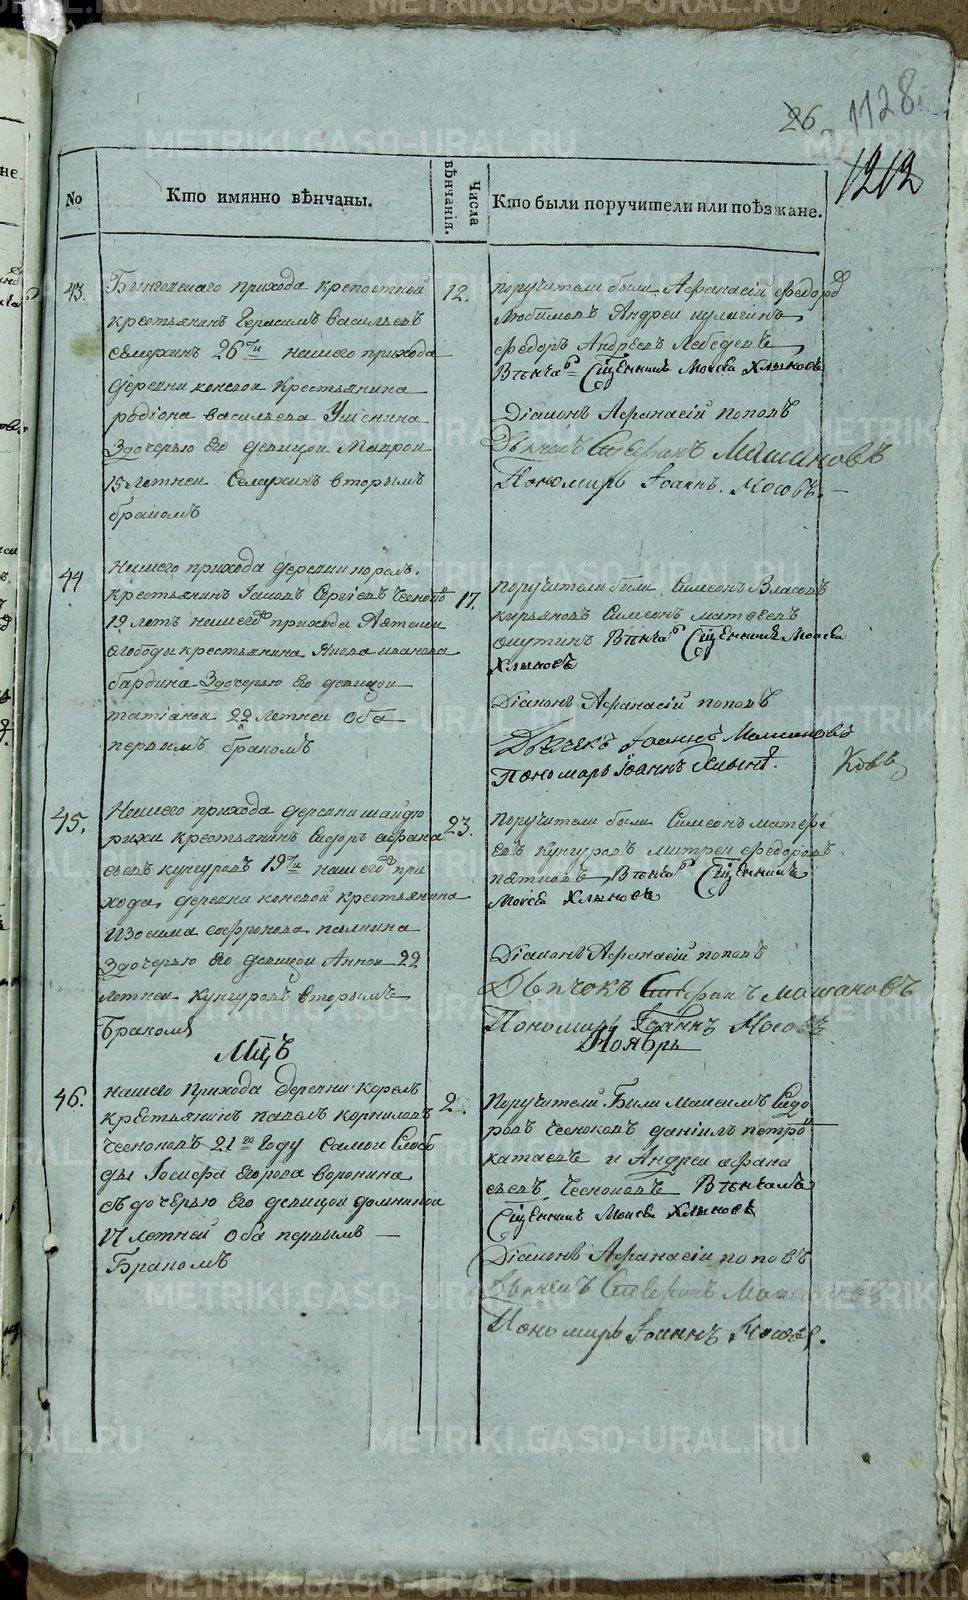 26 1128.
1212
No
Кто имянно вѣнчаны.
Числа вѣнчанія.
Кто были поручители или поѣзжане.
43.
прихода крепостной
крестьянинъ Герасимъ Васильевъ
Семухинъ 26ти нашего прихода
деревни коневои Крестьянина
родiона васильева
Здочерью Его девицои Маврои
15 летнеи Семухинъ вторымъ
бракомъ
12.
поручители были Афанасiй федоръ
Любимовъ Андреи кулагинъ
федоръ Андреевъ Лебедевъ
Вѣнча Сщенникъ Моисей Хлыновъ
Дiаконъ Афанасiй поповъ
Дьячекъ Стефанъ Машановъ
Пономарь Iоаннъ Носовъ.
44
Нашего прихода деревни корелъ.
крестьянинъ Iаковъ Сергѣевъ
19 летъ нашего прихода Аятской
слободы крестьянина Якова иванова
бардина Здочерью Его девицои
татiанои 22 летнеи Оба
первымъ бракомъ
17.
Поручители были Симеонъ Власовъ
кирьяновъ Симеонъ матвеевъ
Вѣнча Сщенникъ Моисей
Хлыновъ
Дiаконъ Афанасiй поповъ
Дьячекъ Iоаннъ
Пономарь Iоаннъ
ковъ
45.
Нашего прихода деревни шайдю
рихи крестьянинъ Сидоръ афана
сьевъ кунгуровъ 19ти нашего при
хода деревни коневой крестьянина
Изосима софронова палкина
Здочерью Его девицои Аннои 22
летнеи кунгуровъ вторымъ
Бракомъ
23.
Поручители были Симеонъ матвѣ
евъ кунгуровъ митреи федоровъ
пятковъ Вѣнча Сщенникъ
Моисей Хлыновъ
Дiаконъ Афанасiй поповъ
Дьячокъ Стефанъ машановъ
Пономарь Iоаннъ Носовъ
Мцъ Ноябрь
46.
нашего Прихода Деревни керелъ
крестьянинъ павелъ корниловъ
Чесноковъ 21го Году Самои Слобо
ды Iосифа Егорова воронина
съ дочерью Его девицои домникои
17 летней Оба первымъ
Бракомъ
2.
Поручители Были Максимъ Сидо
ровъ Чесноковъ данiилъ петро
катаевъ и Андреи афана
сьевъ Чесноковъ Вѣнчалъ
Сщенникъ Моисей Хлыновъ
Дiаконъ Афанасiи поповъ
Дьячекъ Стефанъ Машановъ
Пономарь Iоаннъ Носовъ.
METRIKI.GASO-URAL.RU